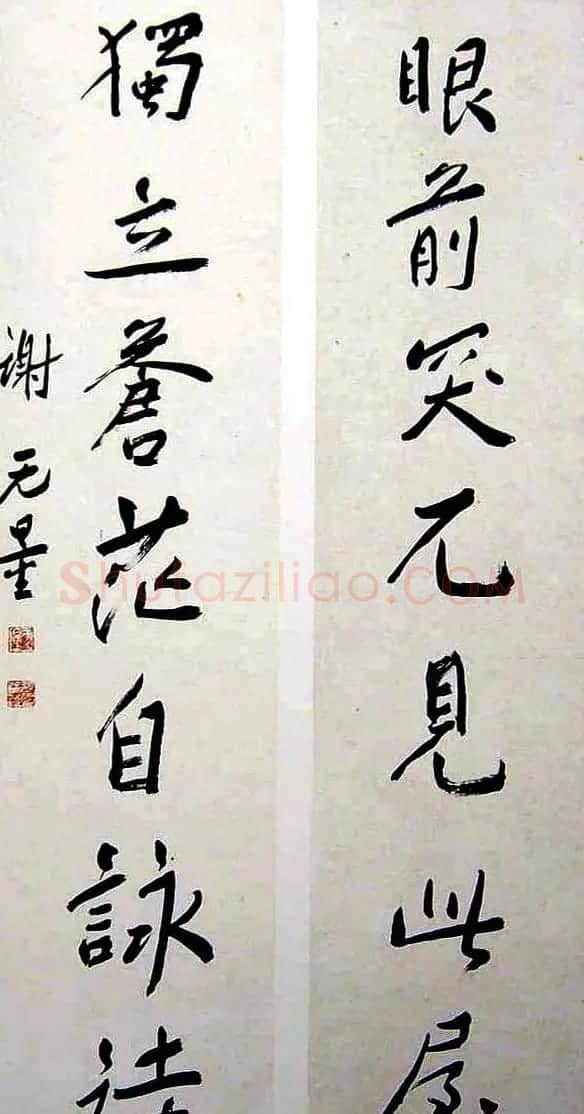 眼前突兀見此屋
獨立蒼茫自詠詩
谢无量
Shufaziliao.COM